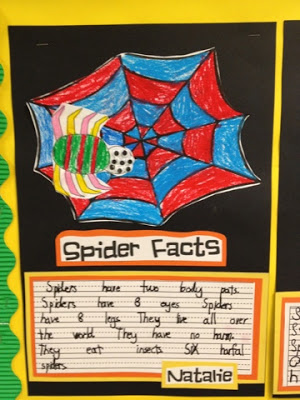 Spider Facts
Spiders have two body pats.
Spiders have 8 eyes Spiders
have 8 legs They live all over
the world They have no
They eat insects Six harfal
spiders.
Natalie